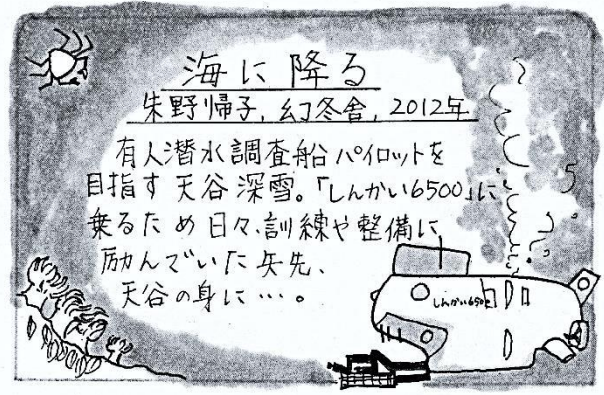 海に降る
朱野帰子, 幻冬舎, 2012年
有人潜水調査船パイロットを
目指す天谷深雪。「しんかい6500」に
乗るため日々、訓練や整備に
励んでいた矢先、
天谷の身に…。
しんかい6500